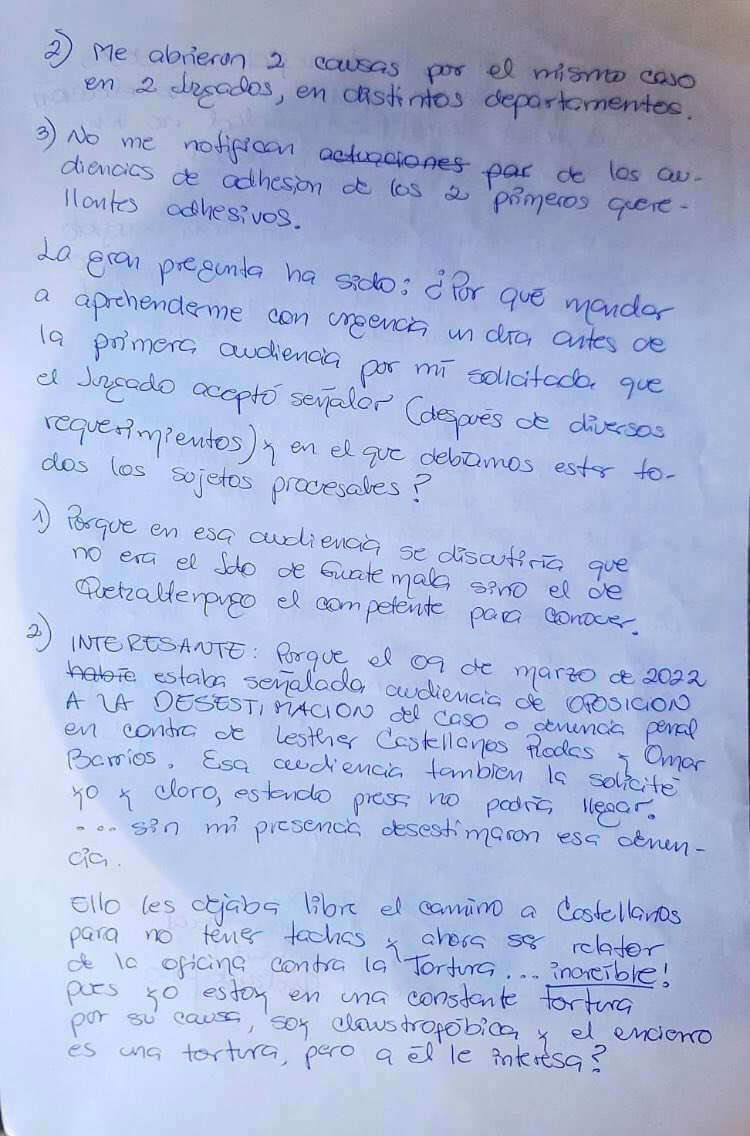 2) Me abrieron 2 causas por el mismo caso
en 2 Juzgados, en distintos departamentos.
3) No me notifican actuaciones par de los au-
diencias de adhesión de los 2 primeros quere-
llantes adhesivos.
La gran pregunta ha sido: ¿Por qué mandar
a aprehenderme con urgencia un día antes de
la primera audiencia por mí solicitada que
el Juzgado aceptó señalar (después de diversos
requerimientos) y en el que debíamos estar to-
dos los sujetos procesales?
1) Porque en esa audiencia se discutiría que
no era el Jdo de Guatemala sino el de
Quetzaltenango el competente para conocer.
2) INTERESANTE: Porque el 09 de marzo de 2022
había estaba señalada audiencia de OPOSICION
A LA DESESTIMACION del caso o denuncia penal
en contra de Lesther Castellanos Rodas y Omar
Barrios. Esa audiencia tambien la solicité
yo y claro, estando presa no podría llegar.
... sin mi presencia desestimaron esa denun-
cia.
Ello les dejaba libre el camino a Castellanos
para no tener tachas y ahora ser relator
de la oficina contra la Tortura... increíble!
pues yo estoy en una constante tortura
por su causa, soy claustrofóbica y el encierro
es una tortura, pero a él le interesa?